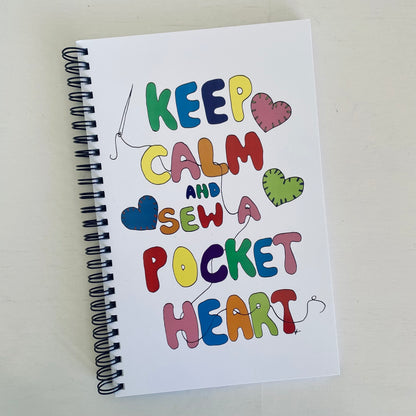 KEEP
CALM
AND
SEW A
POCKET
HEART